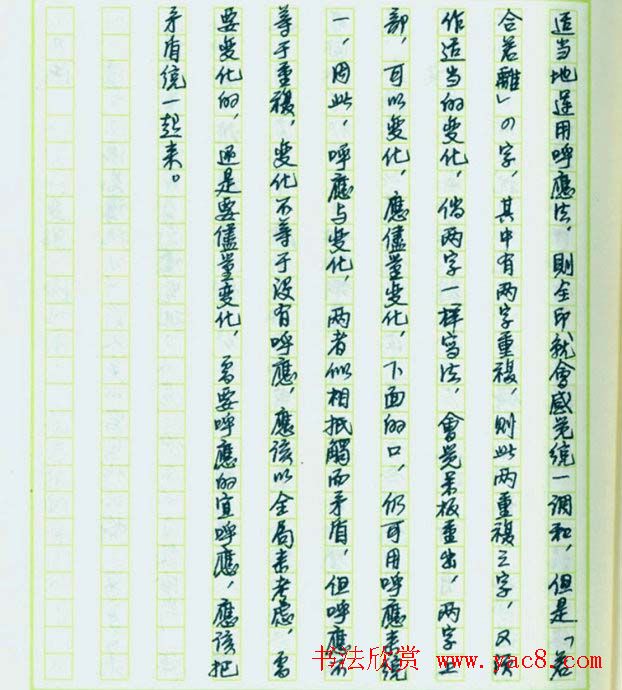 适当地运用呼應法，则全印就會感觉统一調和，但是「若
合若離」の字，其中有两字重複，则此两重複之字，又须
作适当的变化，倘两字一样写法，會觉呆板重出，两字上
部，可以变化，應儘量变化，下面的口，仍可用呼應来统
一，因此，呼應与变化，两者似相抵觸而矛盾，但呼應不
等于重複，变化不等于没有呼應，應该以全局来考虑，需
要变化的，还是要儘量变化，需要呼應的宜呼應，應该把
矛盾统一起来。
书法欣赏 www.yac8.com